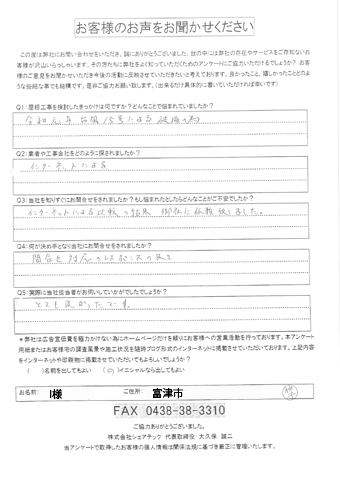 お客様のお声をお聞かせください
この度は弊社にお問い合わせをいただき、誠にありがとうございました。世の中には弊社の存在やサービスをご存知ないお
客様が沢山いらっしゃいます。その方たちに弊社をよく知っていただくためのアンケートにご協力いただけるでしょうか？お
客様のご意見をお聞かせいただき今後の活動に反映させていただきたいと考えております。良かったこと、嬉しかったことどの
ような些細な事でも結構です。是非ご協力お願い致します。（出来るだけ具体的に書いていただければ幸いです）
Q1：屋根工事を検討したきっかけは何ですか？どんなことで悩まれていましたか？
令和元年 台風15号による 破損の為
Q2：業者や工事会社をどのように探されましたか？
インターネットによる
Q3：当社を知りすぐにお問合せをされましたか？もし悩まれたとしたらどんなことがご不安でしたか？
インターネットによる比較の結果 御社に依頼致しました。
Q4：何が決め手となり当社にお問合せをされましたか？
問合せ対応のレスポンスの良さ
Q5：実際に当社担当者がお伺いしていかがでしたでしょうか？
とても良かったです。
＊弊社は広告宣伝費を極力かけない為にホームページだけを頼りにお客様への営業活動を行っております。本アンケート
用紙またはお客様宅の調査風景や施工状況を随時ブログ形式のインターネットに掲載させていただいております。上記内容
をインターネットや印刷物に掲載させていただいてもよろしいでしょうか？
（　）名前を出してもよい　（○）イニシャルなら出してもよい
お名前： I様　ご住所： 富津市
FAX 0438-38-3310
ご協力ありがとうございました。
株式会社シェアテック 代表取締役 大久保 誠二
当アンケートで取得したお客様の個人情報は関係法規に基づき厳正に管理いたします。